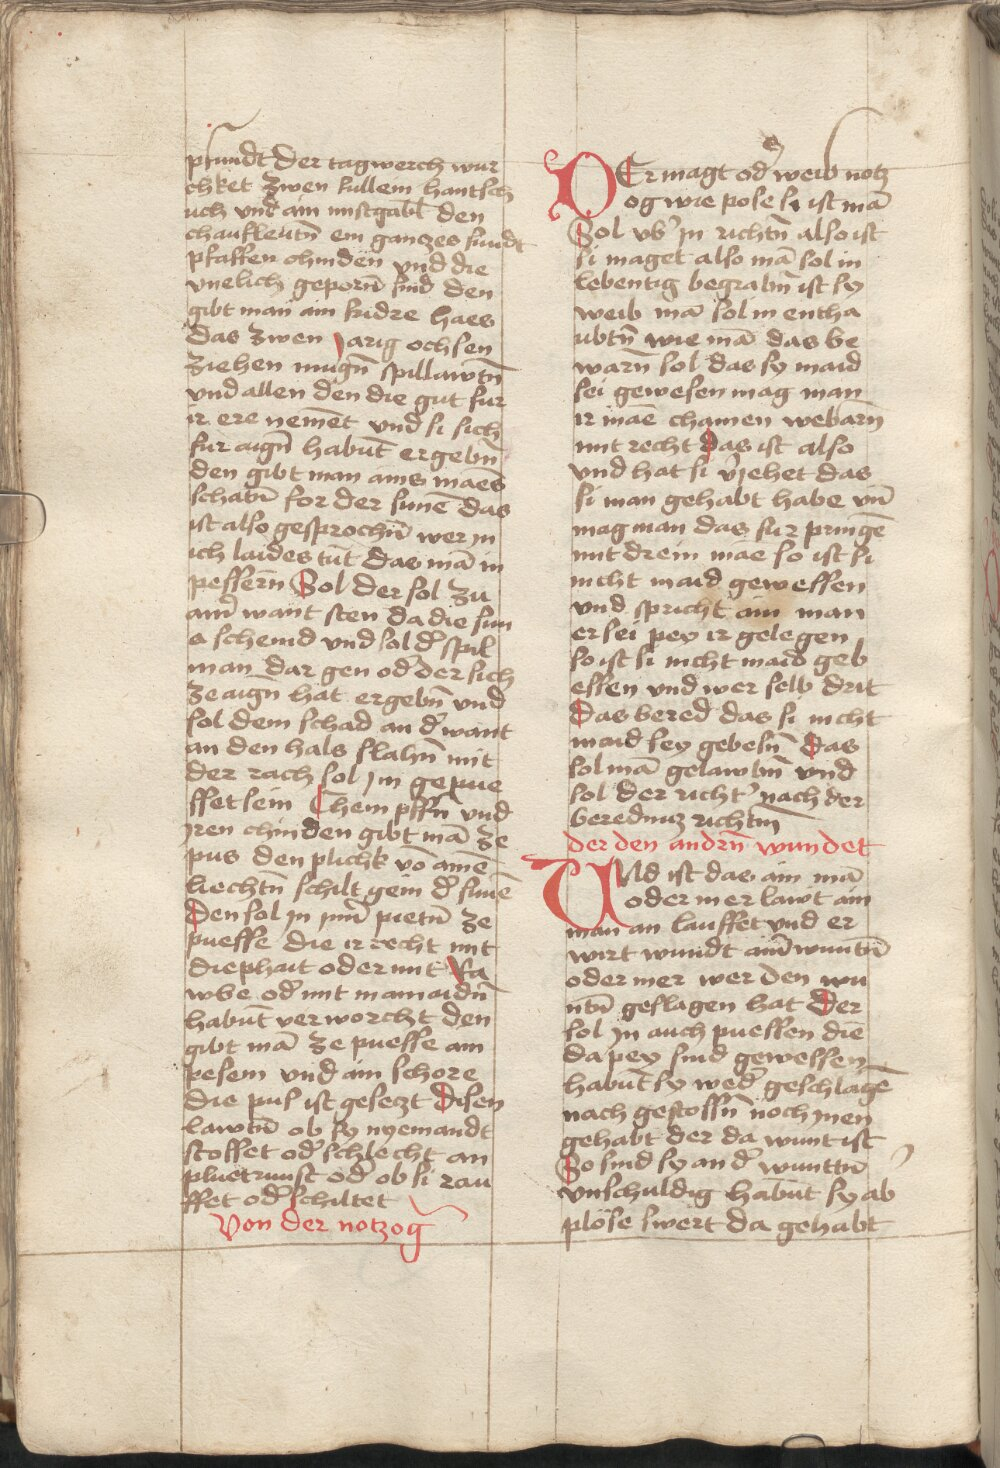 pfundt der tagwerch wur
chket zwen wllem hantsch
uch vnd ain mistgabl den
chaufleutn̄ ein ganczes fuedt
pfaffen chinden vnd die
vnelich geporn̄ sind den
gibt man ain fudre haes
das zwen jarig ochsen
ziehen mugn̄ spillawtn̄
vnd allen den die gut fur
ir ere nement vnd si sich
fur aigñ habūt ergebn̄
den gibt man ains maēs
schatn̄ for der sunē das
ist also gesprochn̄ wer in
ich laides tut das mā in
pessern̄ Sol der sol zu
ainr̄ want sten da die sun
a scheind vnd sol dʾ spil
man dar gen odʾ der sich
ze aigñ hat ergebn̄ vnd
sol dem schad an dʾ want
an den hals slahn̄ mit
der rach sol jm gepue
sset sein Chempfn̄ vnd
jren chinden gibt mā ze
pus den plichk vō ainē
liechtn̄ schilt gein dʾ sunē
Den sol jn jnn̄ pietn̄ ze
puesse die ir recht mit
diephait oder mit Ra
wbe odʾ mit mainaidn̄
habūt verworcht den
gibt mā ze puesse ain
pesem vnd ain schore
die pus ist gesetzt Disen
lawtn̄ ob sy nyemandt
stosset odʾ schlecht an
pluetrunst odʾ ob si rau
ffet odʾ schiltet
Von der notzog
DEr magt odʾ weib notz
og wie pose si ist mā
Sol vbʾ jn richtn̄ also ist
si maget also mā sol in
lebentig begrabn̄ ist sy
weib mā sol in entha
ubtn̄ wie mā das be
warn̄ sol das sy maid
sei gewesen mag man
ir māe chamen webarn̄
mit recht das ist also
vnd hat si v̄jehet das
si man gehabt habe vn̄
mag man das fur pringē
mit drein māe so ist si
nicht maid gewessen
vnd spricht ain man
er sei pey ir gelegen
so ist si nicht maid geb
essen vnd wer selb drit
Das bered das si nicht
maid sey gebesn̄ Das
sol mā gelawbn̄ vnd
sol der richtʾ nach der
berednuz richtn̄
der den andrn̄ wundet
VNd ist das ain mā
oder mer lawt ain
man an lauffet vnd er
wirt wundt ainr̄ wuntn̄
oder mer wer den wu
ntn̄ geslagen hat Der
sol jn auch puessen die
da pey sind gewessen
habūt sy wedʾ geschlagē
nach gestossn̄ noch men
gehabt der da wunt ist
So sind sy an dʾ wunttn̄
vnschuldig habūt sy ab
plose swert da gehabt